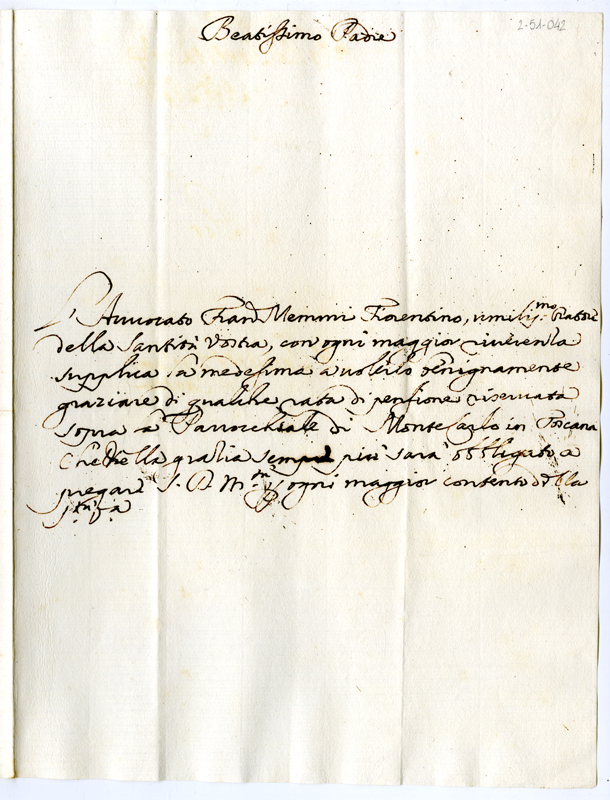 2-51-042
Beatissimo Padre
L'Avvocato Fran.o Memmi Fiorentino, umiliss.mo Oratore
della Santità Vostra, con ogni maggior riverenza
supplica la medesima a volerlo benignamente
graziare di qualche rata di pensione riservata
sopra la Parrochiale di Montecarlo in Toscana
Che della grazia sempre più sarà obbligato a
pregare S. D. M.tà p ogni maggior contento della
S.tà S.a